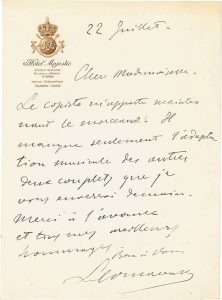 Hôtel Majestic
22 Juillet
Cher Mademoiselle
Le copiste m'apporte mainte
nant le morceau. Il
manque seulement l'adapta
tion musicale des autres
deux couplets que je
vous enverrai demain.
Merci à l'avance
et tous mes meilleurs
hommages
Leoncavallo